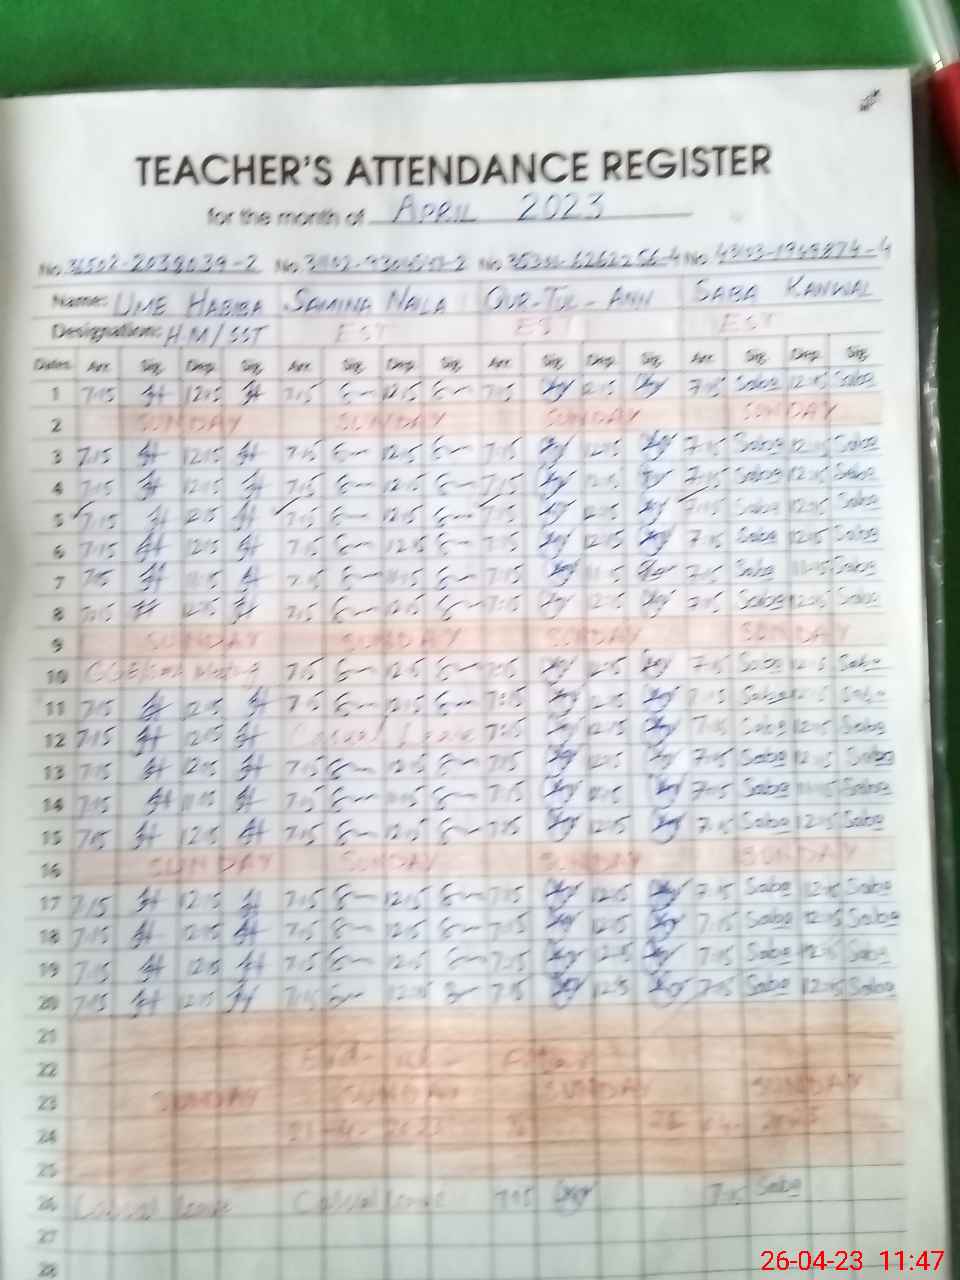 TEACHER'S ATTENDANCE REGISTER
for the month of APRIL 2023
No. 31502-2038039-2 No. No. No.
Name: UME HABIBA SAMINA NAILA QUR-TUL-ANN SABA KANWAL
Designation: HM/SST EST EST EST
Dates Arr. Sig. Dep. Sig. Arr. Sig. Dep. Sig. Arr. Sig. Dep. Sig. Arr. Sig. Dep. Sig.
1 7:15 12:15 7:15 12:15 7:15 12:15 7:15 Saba 12:15 Saba
2 SUNDAY SUNDAY SUNDAY SUNDAY
3 7:15 12:15 7:15 12:15 7:15 12:15 7:15 Saba 12:15 Saba
4 7:15 12:15 7:15 12:15 7:15 12:15 7:15 Saba 12:15 Saba
5 7:15 12:15 7:15 12:15 7:15 12:15 7:15 Saba 12:15 Saba
6 7:15 12:15 7:15 12:15 7:15 12:15 7:15 Saba 12:15 Saba
7 7:15 11:15 7:15 11:15 7:15 11:15 7:15 Saba 11:15 Saba
8 7:15 12:15 7:15 12:15 7:15 12:15 7:15 Saba 12:15 Saba
9 SUNDAY SUNDAY SUNDAY SUNDAY
10 Meeting 7:15 12:15 7:15 12:15 7:15 Saba 12:15 Saba
11 7:15 12:15 7:15 12:15 7:15 12:15 7:15 Saba 12:15 Saba
12 7:15 12:15 Casual Leave 7:15 12:15 7:15 Saba 12:15 Saba
13 7:15 12:15 7:15 12:15 7:15 12:15 7:15 Saba 12:15 Saba
14 7:15 11:15 7:15 11:15 7:15 11:15 7:15 Saba 11:15 Saba
15 7:15 12:15 7:15 12:15 7:15 12:15 7:15 Saba 12:15 Saba
16 SUNDAY SUNDAY SUNDAY SUNDAY
17 7:15 12:15 7:15 12:15 7:15 12:15 7:15 Saba 12:15 Saba
18 7:15 12:15 7:15 12:15 7:15 12:15 7:15 Saba 12:15 Saba
19 7:15 12:15 7:15 12:15 7:15 12:15 7:15 Saba 12:15 Saba
20 7:15 12:15 7:15 12:15 7:15 12:15 7:15 Saba 12:15 Saba
21
22 Eid-ul-
23 SUNDAY SUNDAY SUNDAY SUNDAY
24 21-4-2023
25
26 Casual Leave Casual Leave 7:15 7:15 Saba
27
28
26-04-23 11:47